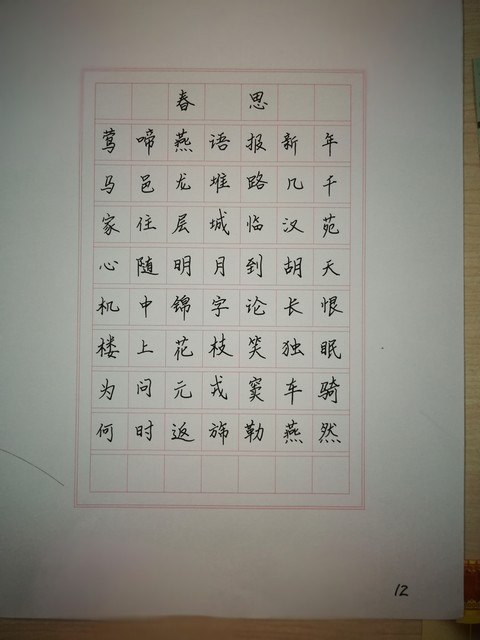 春思
莺啼燕语报新年
马邑龙堆路几千
家住层城临汉苑
心随明月到胡天
机中锦字论长恨
楼上花枝笑独眠
为问元戎窦车骑
何时返旆勒燕然
12